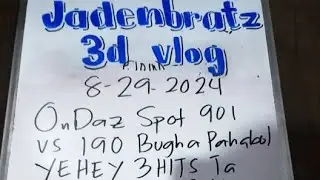 Jadenbratz
3d vlog
8-29-2024
OnDaz Spot 901
vs 190 Bugha Pahabol
YEHEY 3HITS Ta